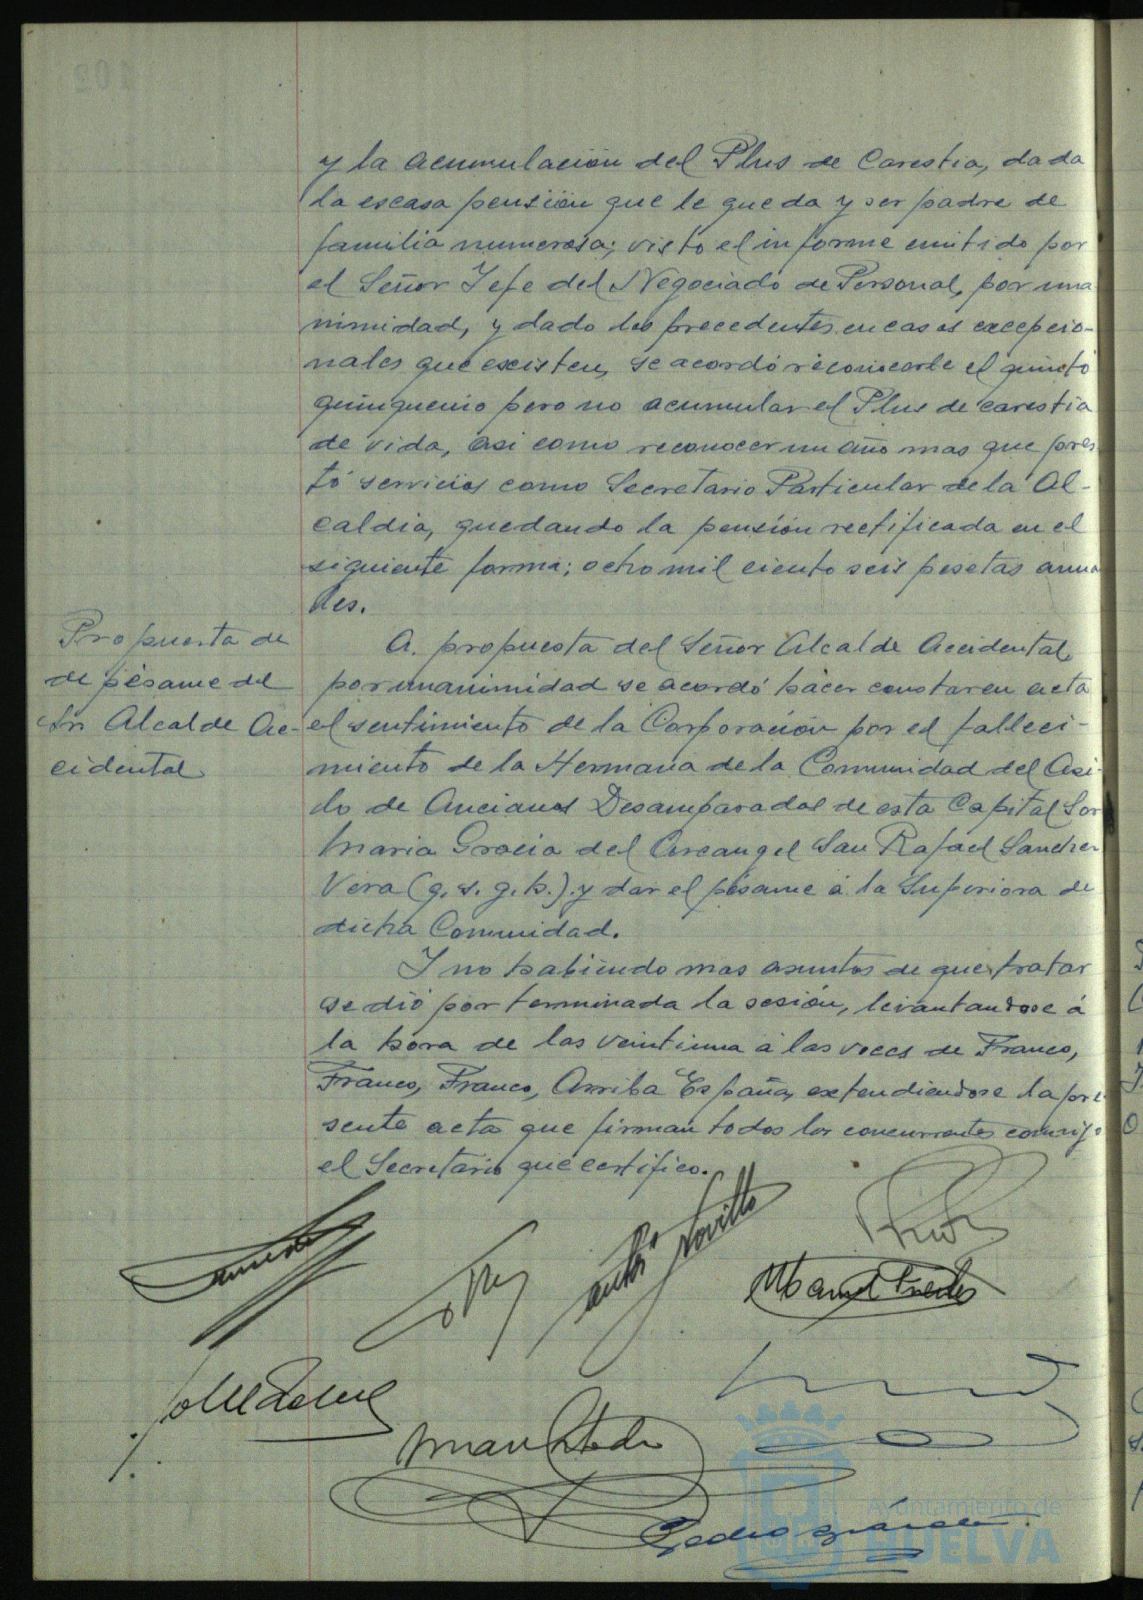 y la acumulación del Plus de Carestia, dada
la escasa pensión que le queda y ser padre de
familia numerosa; visto el informe emitido por
el Señor Jefe del Negociado de Personal, por una
nimidad, y dado los precedentes en casos excepcio-
nales que existen, se acordó reconocerle el quinto
quinquenio pero no acumular el Plus de carestia
de vida, asi como reconocer un año mas que pres
tó servicios como Secretario Particular de la Al-
caldia, quedando la pensión rectificada en el
siguiente forma; ocho mil ciento seis pesetas anua
les.
Propuesta de
de pésame del
Sr. Alcalde Ac-
cidental
A propuesta del Señor Alcalde Accidental,
por unanimidad se acordó hacer constar en acta
el sentimiento de la Corporación por el falleci-
miento de la Hermana de la Comunidad del Asi-
lo de Ancianos Desamparados de esta Capital Sor
Maria Gracia del Arcangel San Rafael Sanchez
Vera (q. s. g. h.) y dar el pésame á la Superiora de
dicha Comunidad.
Y no habiendo mas asuntos de que tratar
se dió por terminada la sesión, levantandose á
la hora de las veintiuna a las voces de Franco,
Franco, Franco, Arriba España, extendiendose la pre-
sente acta que firman todos los concurrentes conmigo
el Secretario que certifico.
Antº Novillo
Manuel
Pedro
Ayuntamiento de
HUELVA